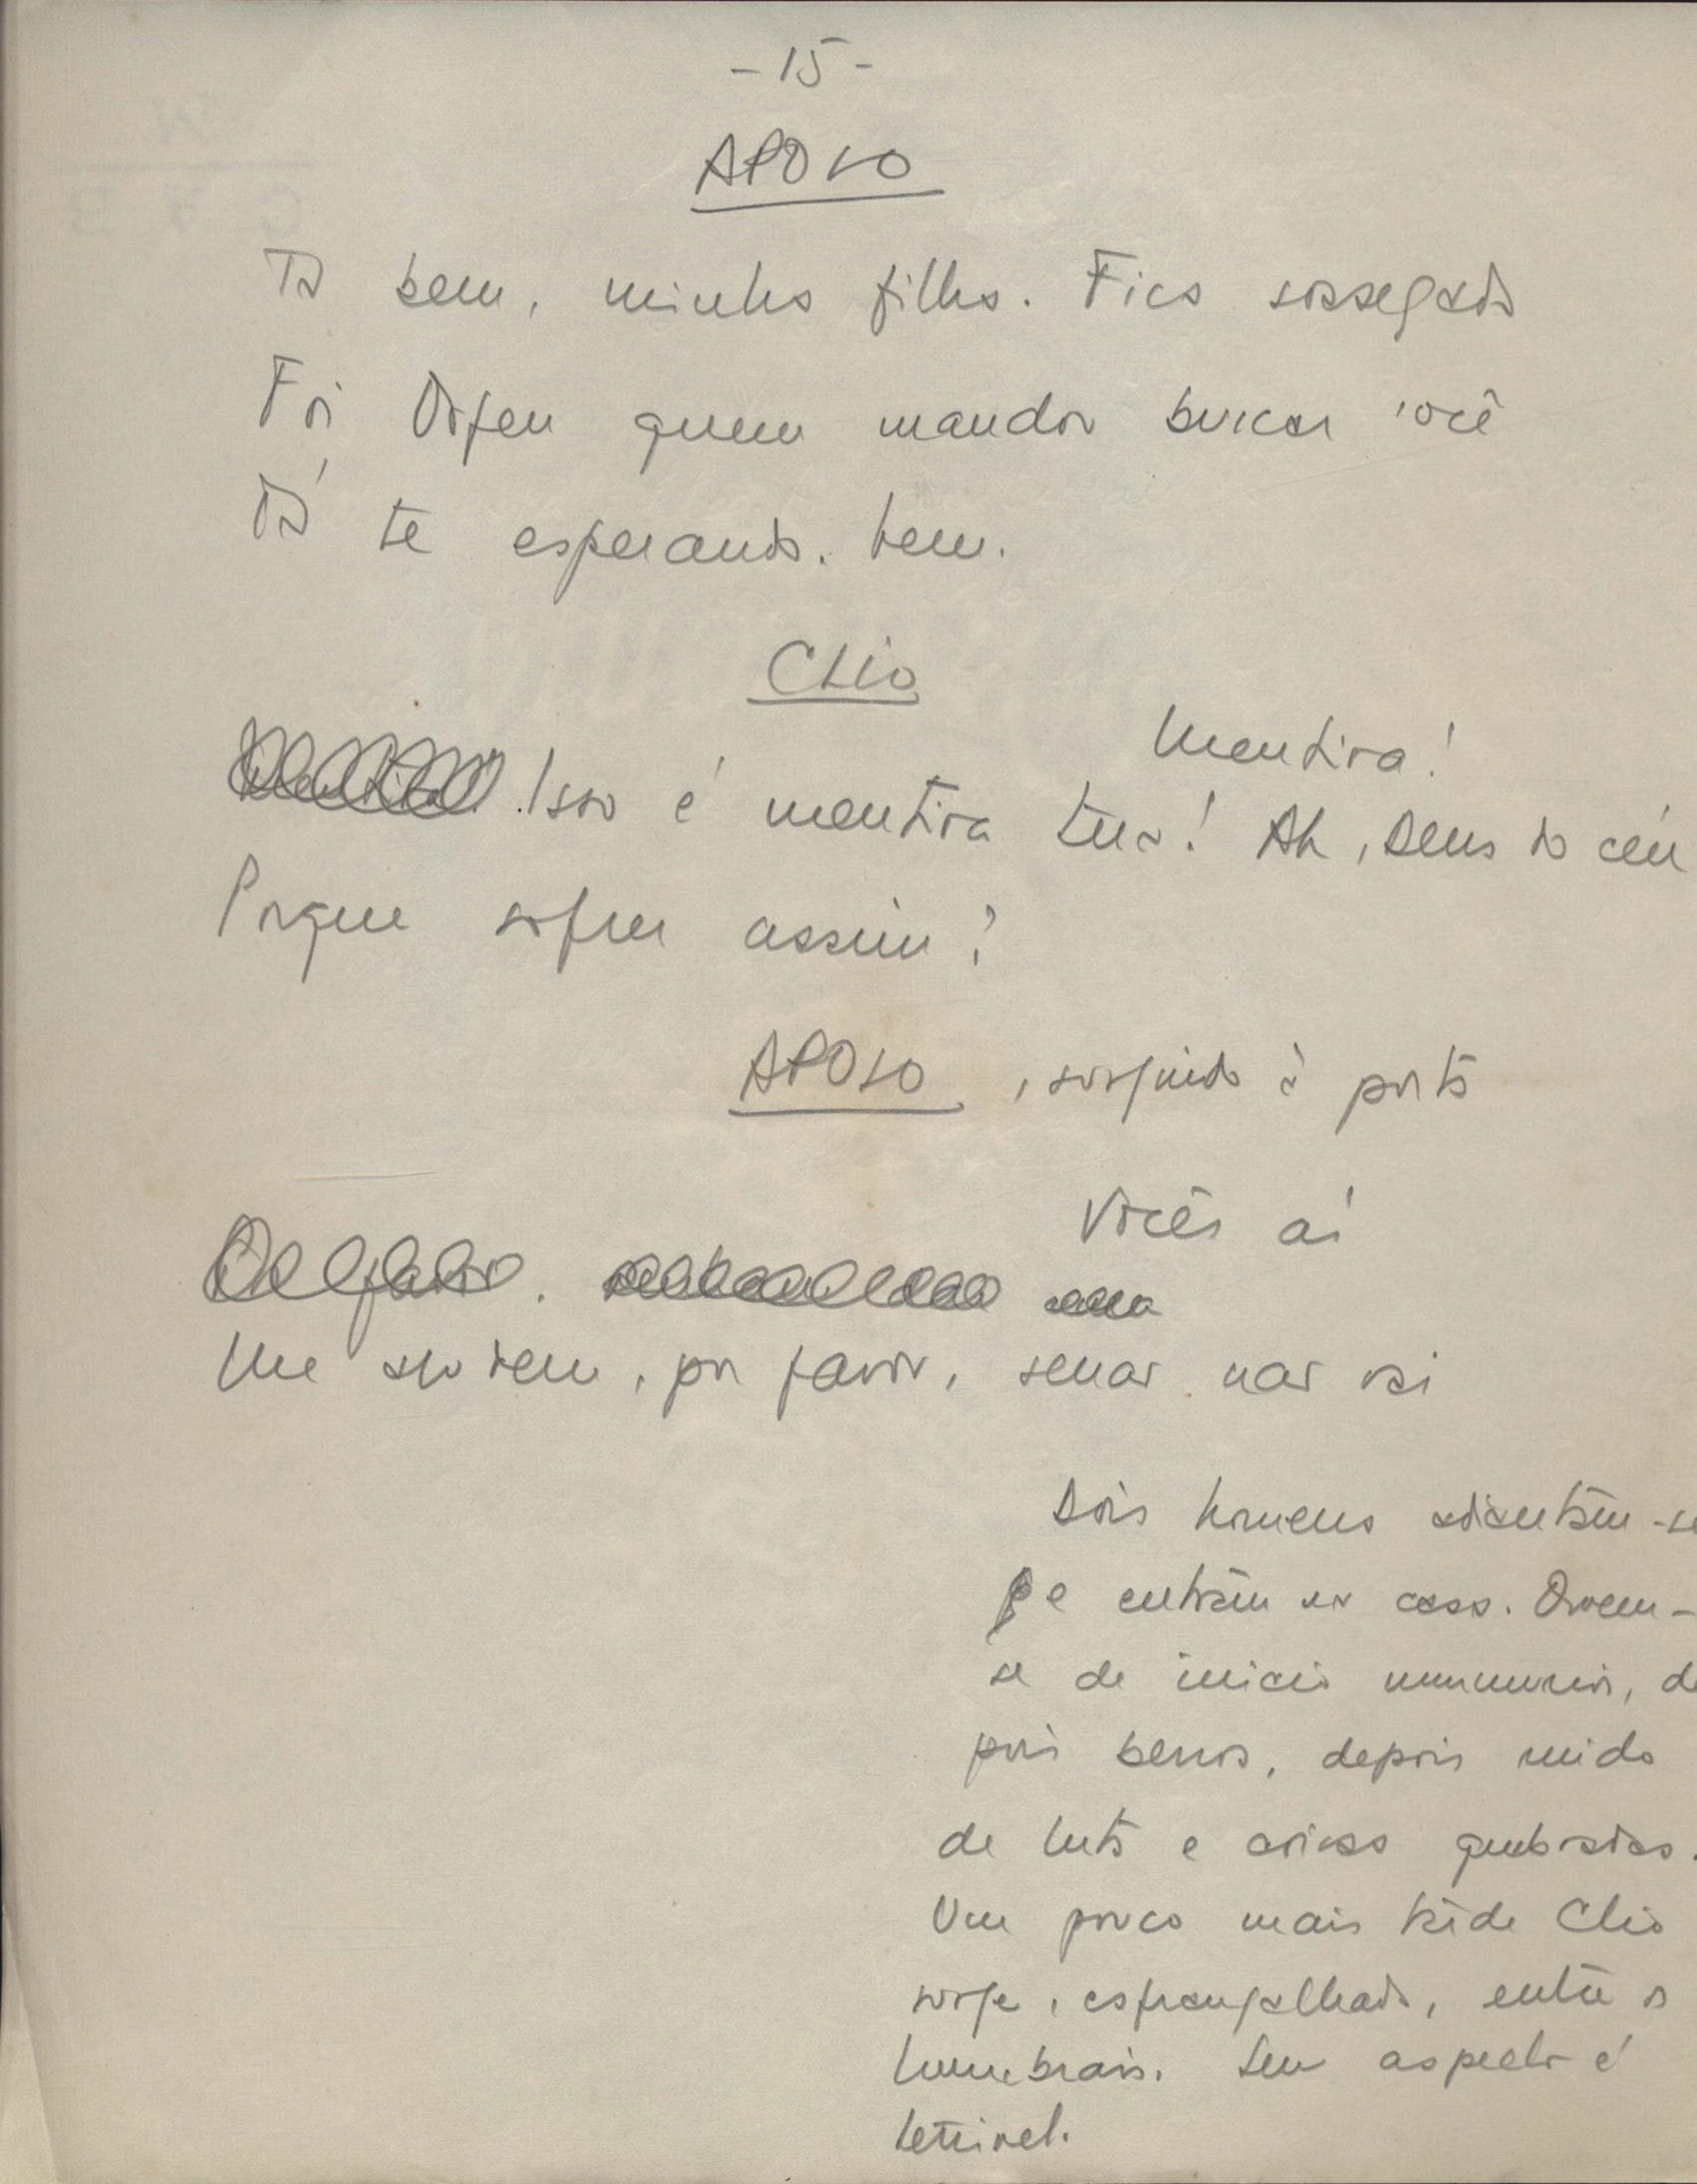 - 15 -
APOLO
Tá bem, minha filha. Fica sossegada
Foi Orfeu quem mandou buscar você
Tá te esperando. Vem.
CLIO
Mentira!
Isso é mentira tua! Ah, Deus do céu
Porque sofrer assim?
APOLO, surgindo à porta
Vocês aí
Me ajudem, por favor, senão não vai
Dois homens adiantam-se
e entram na casa. Ouvem-
se de início murmúrios, de
pois berros, depois ruido
de luta e coisas quebradas.
Um pouco mais tarde Clio
surge, esfrangalhada, entre os
humbrais. Seu aspecto é
terrivel.